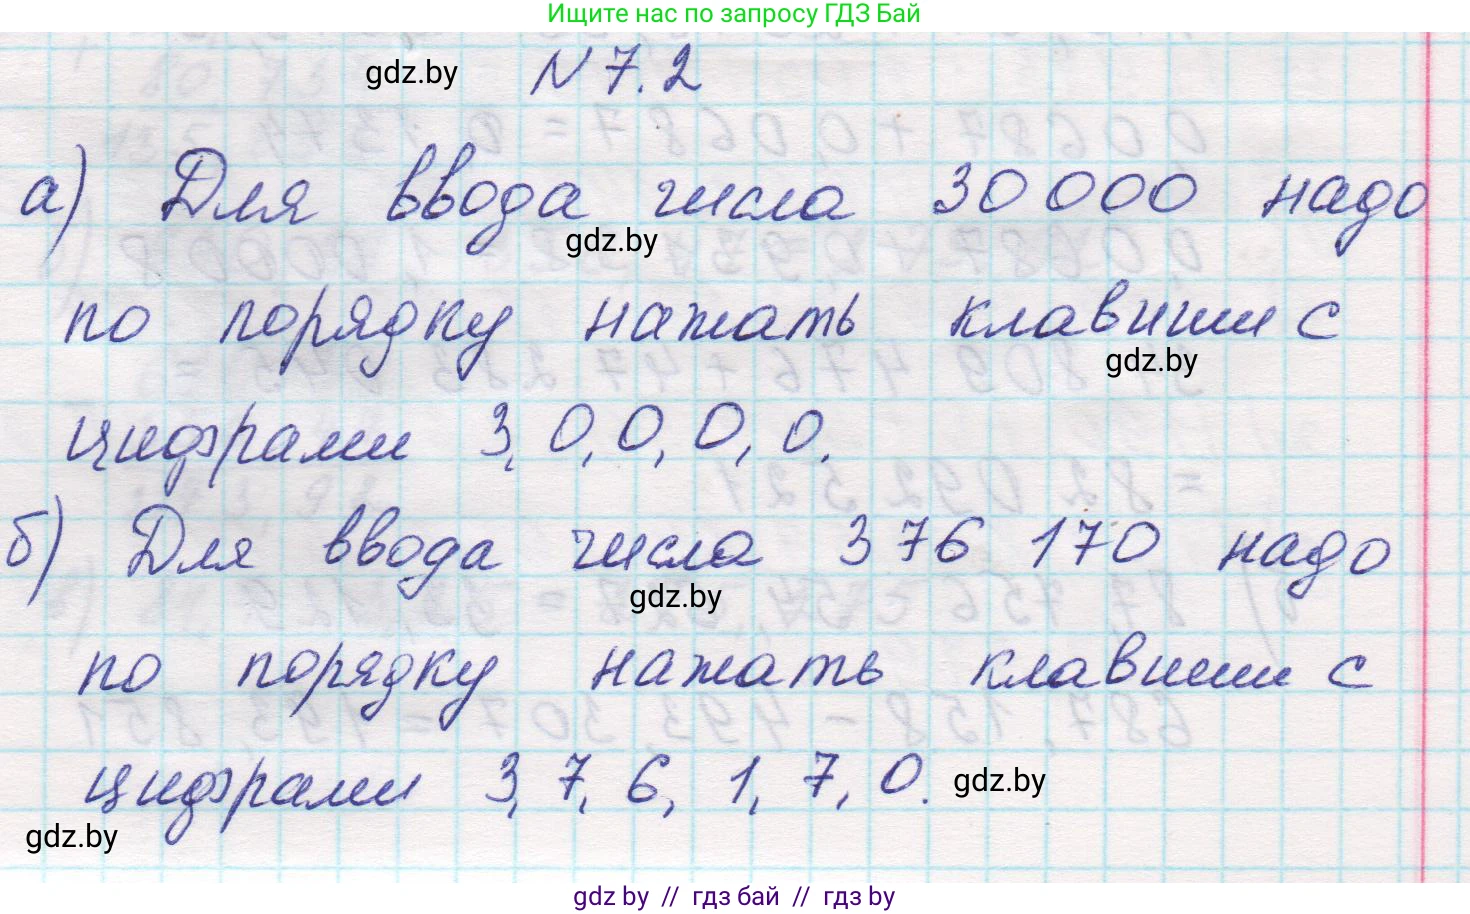 Ищите нас по запросу ГДЗ Бай
gdz.by N 7.2
а) Для ввода числа 30000 надо
gdz.by
по порядку нажать клавиши с
gdz.by
цифрами 3, 0, 0, 0, 0.
б) Для ввода числа 376 170 надо
gdz.by
по порядку нажать клавиши с
цифрами 3, 7, 6, 1, 7, 0. gdz.by
gdz.by
gdz by // гдз бай // гдз by